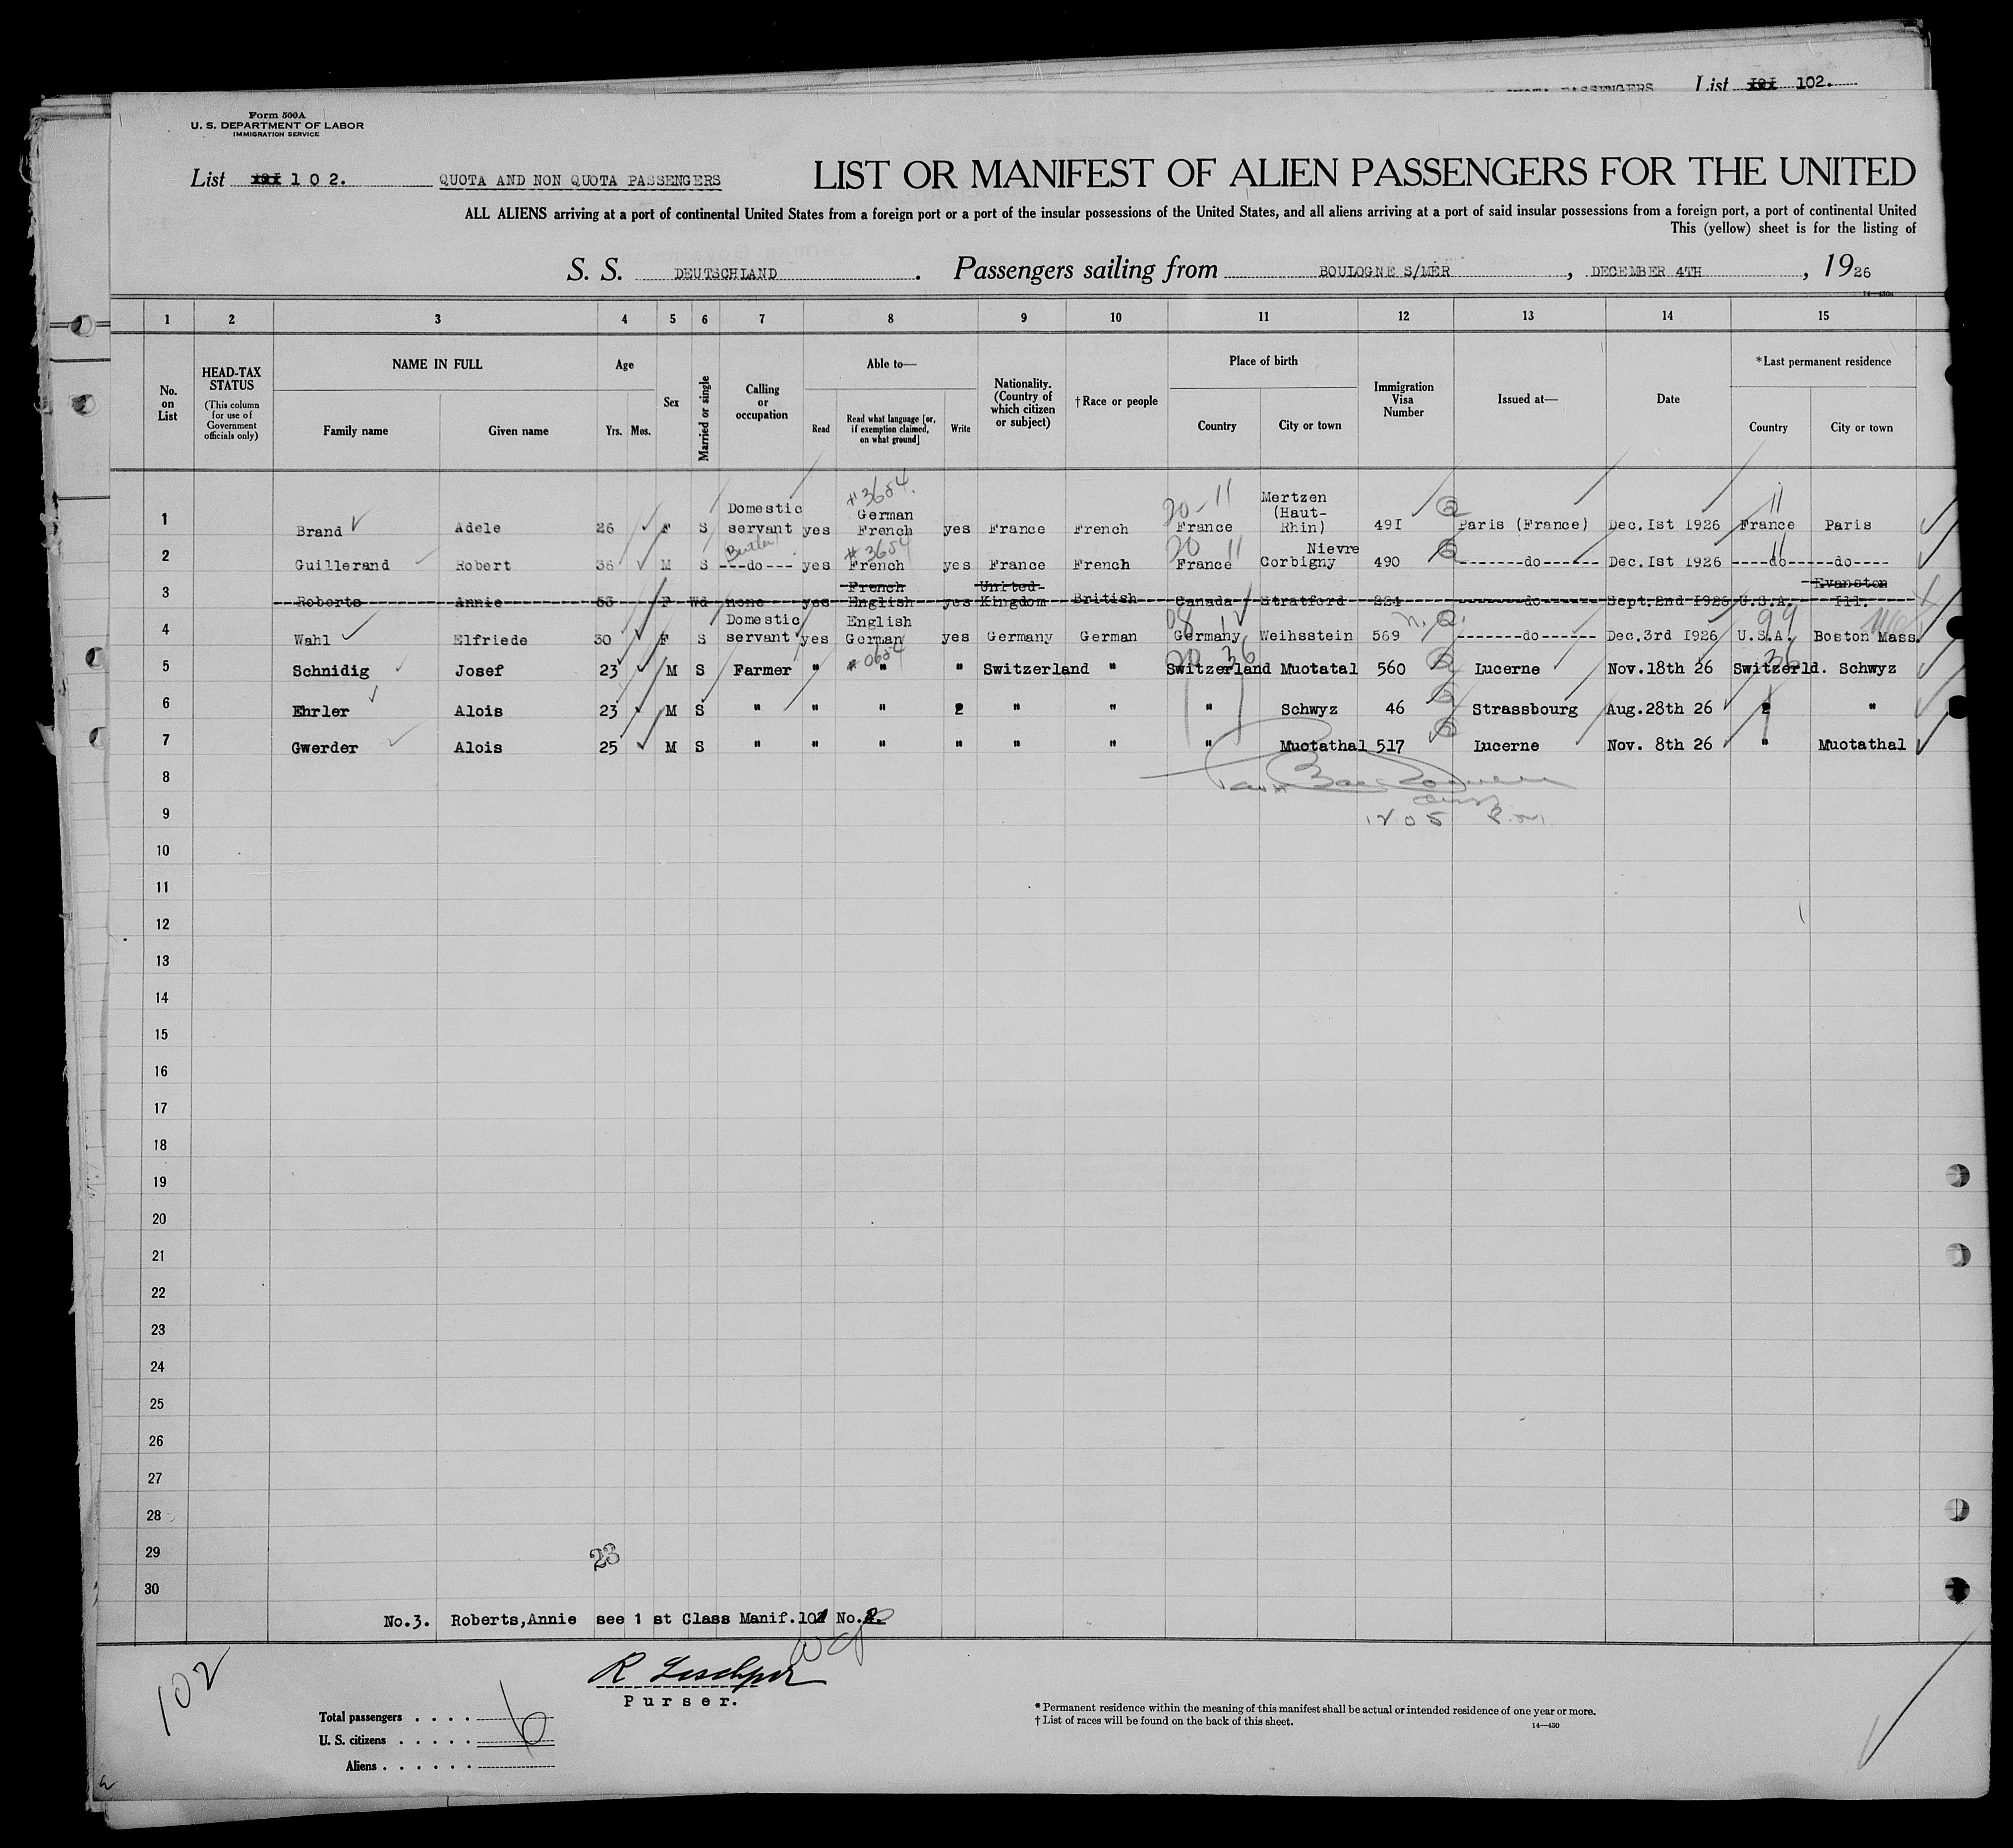 PASSENGERS List 102.
Form 500A
U. S. DEPARTMENT OF LABOR
IMMIGRATION SERVICE
List 1 0 2. QUOTA AND NON QUOTA PASSENGERS LIST OR MANIFEST OF ALIEN PASSENGERS FOR THE UNITED
ALL ALIENS arriving at a port of continental United States from a foreign port or a port of the insular possessions of the United States, and all aliens arriving at a port of said insular possessions from a foreign port, a port of continental United
This (yellow) sheet is for the listing of
S. S. DEUTSCHLAND . Passengers sailing from BOULOGNE S/MER , DECEMBER 4TH , 1926
1 2 3 4 5 6 7 8 9 10 11 12 13 14 15
No. on List
HEAD-TAX STATUS (This column for use of Government officials only)
NAME IN FULL
Family name Given name
Age
Yrs. Mos.
Sex
Married or single
Calling or occupation
Able to—
Read Read what language [or, if exemption claimed, on what ground] Write
Nationality. (Country of which citizen or subject)
†Race or people
Place of birth
Country City or town
Immigration Visa Number
Issued at—
Date
*Last permanent residence
Country City or town
1 Brand Adele 26 F S Domestic servant yes #3654. German French yes France French 20-11 France Mertzen (Haut-Rhin) 49I Paris (France) Dec.Ist 1926 11 France Paris
2 Guillerand Robert 36 M S Butler ---do--- yes #3654 French yes France French 20 11 France Nievre Corbigny 490 -------do------- Dec.Ist 1926 11 ----do---- ----do----
3 Roberts Annie 53 F Wd none yes French English yes United Kingdom British Canada Stratford 224 -------do------- Sept.2nd 1926 U.S.A. Evanston Ill.
4 Wahl Elfriede 30 F S Domestic servant yes English German yes Germany German Germany Weihsstein 569 n. Q. -------do------- Dec.3rd 1926 99 U.S.A. Boston Mass.
5 Schnidig Josef 23 M S Farmer " #0654 " " Switzerland " 20 36 Switzerland Muotatal 560 Lucerne Nov.18th 26 36 Switzerld. Schwyz
6 Ehrler Alois 23 M S " " " 2 " " " Schwyz 46 Strassbourg Aug.28th 26 2 "
7 Gwerder Alois 25 M S " " " " " " " Muotathal 517 Lucerne Nov. 8th 26 " Muotathal
8
9 1205
10
11
12
13
14
15
16
17
18
19
20
21
22
23
24
25
26
27
28
29 23
30
No.3. Roberts,Annie see 1 st Class Manif.10 No.
102
Purser.
Total passengers . . . . 6
U. S. citizens . . . . .
Aliens . . . . . .
* Permanent residence within the meaning of this manifest shall be actual or intended residence of one year or more.
† List of races will be found on the back of this sheet.
14—430